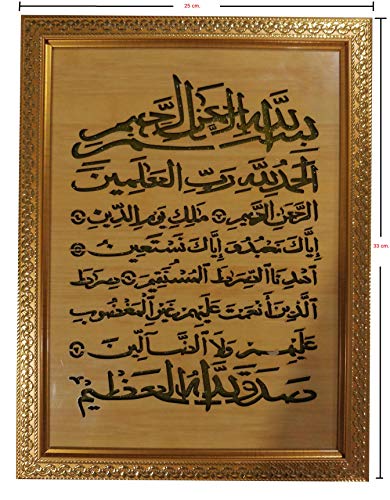 25 cm.
33 cm.
بسم الله الرحمن الرحيم
الحمد لله رب العلمين
الرحمن الرحيم ملك يوم الدين
إياك نعبد و إياك نستعين
اهدنا الصراط المستقيم صراط
الذين أنعمت عليهم غير المغضوب
عليهم ولا الضالين
صدق الله العظيم